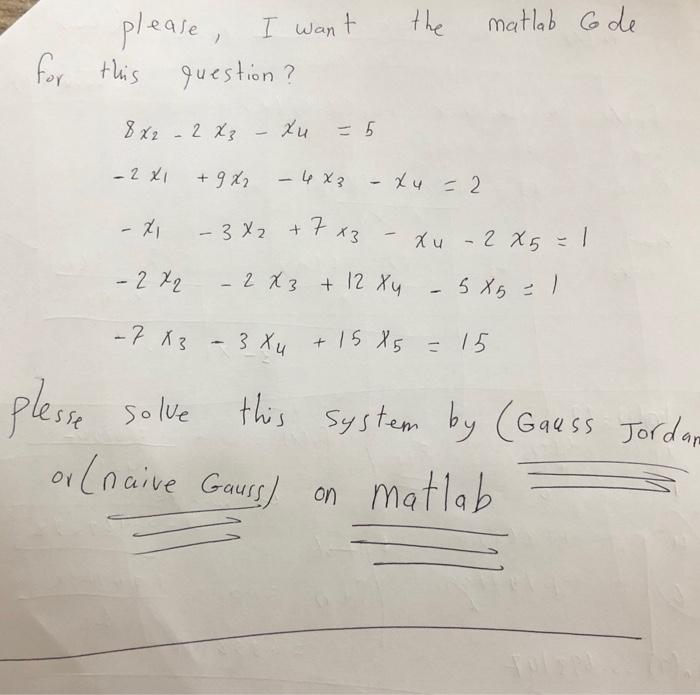 please, I want the matlab Code
for this question?
8x₂ - 2 x₃ - x₄ = 5
-2 x₁ + 9 x₂ - 4 x₃ - x₄ = 2
- x₁ - 3 x₂ + 7 x₃ - x₄ - 2 x₅ = 1
-2 x₂ - 2 x₃ + 12 x₄ - 5 x₅ = 1
-7 x₃ - 3 x₄ + 15 x₅ = 15
plesse solve this system by (Gauss Jordan
or (naive Gauss) on matlab